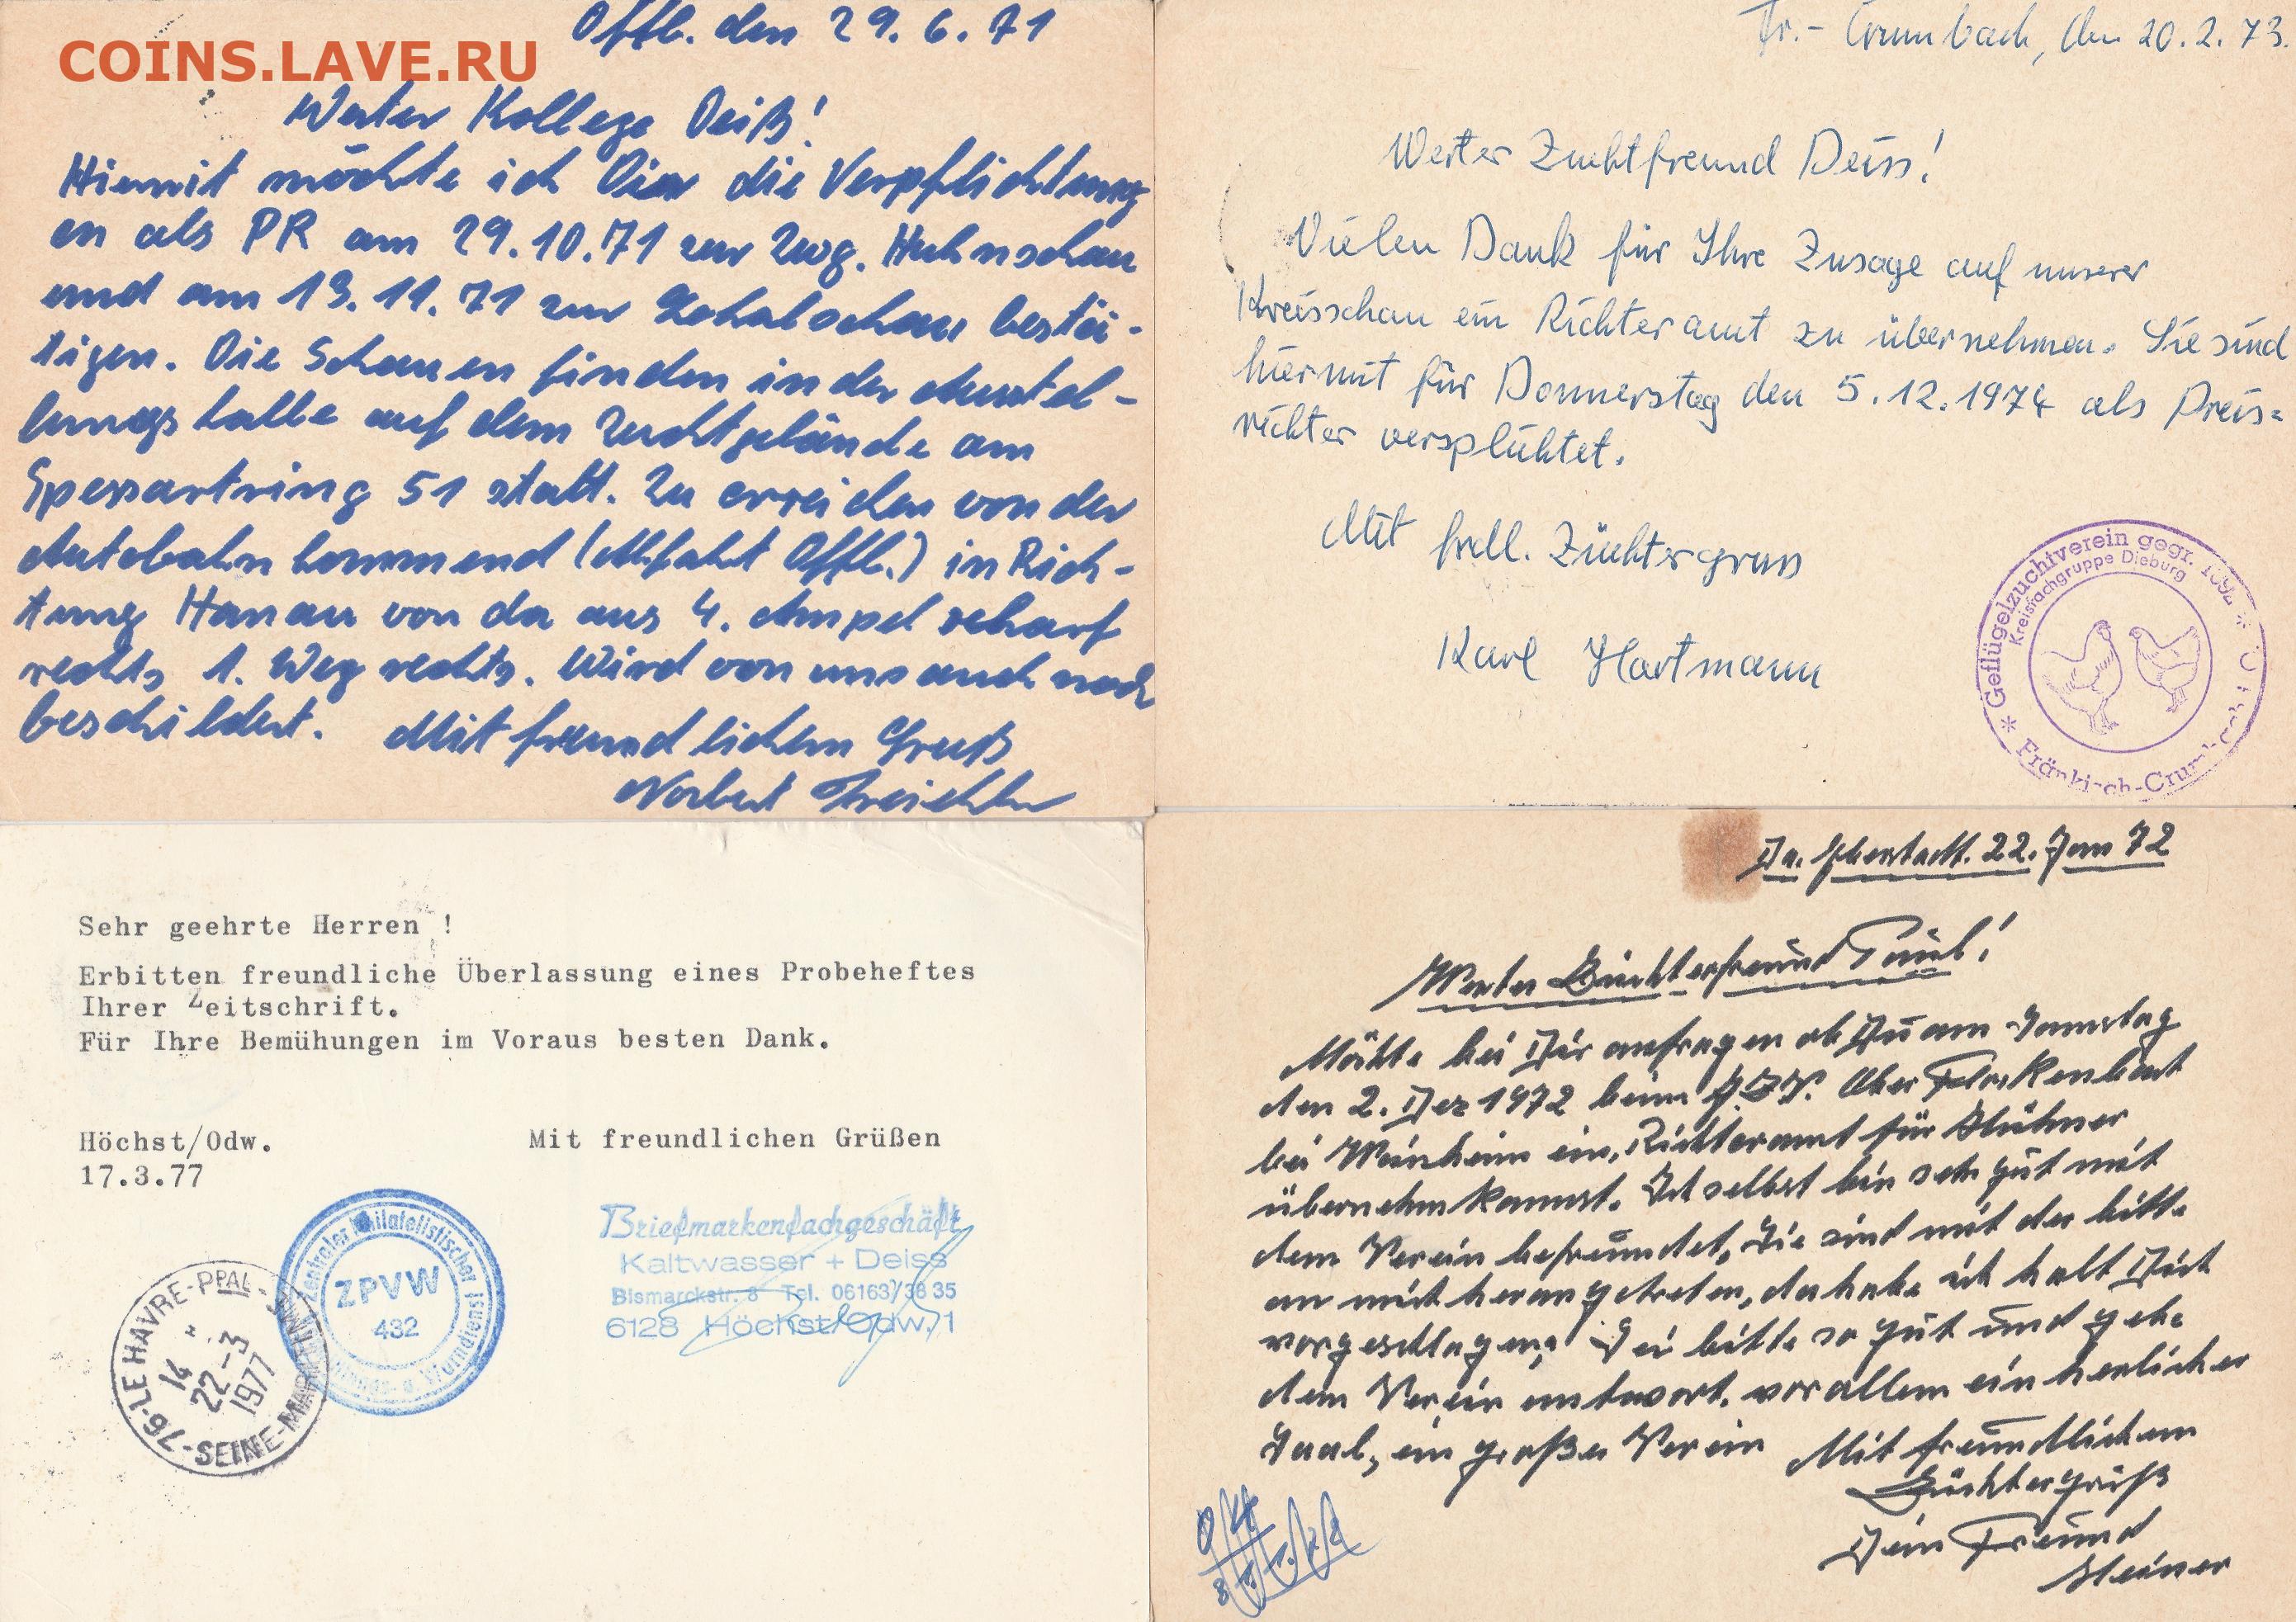 COINS.LAVE.RU
Offb. den 29.6.71
Werter Kollege Deiß!
Hiermit möchte ich Dir die Verpflichtung
en als PR am 29.10.71 zur Zwg. Huhnschau
und am 13.11.71 zur Lokalschau bestä-
tigen. Die Schauen finden in der Austel-
lungshalle auf dem Zuchtgelände am
Spessartring 51 statt. Zu erreichen von der
Autobahn kommend (Abfahrt Offb.) in Rich-
tung Hanau von da aus 4. Ampel scharf
rechts 1. Weg rechts. Wird von uns auch noch
beschildert. Mit freundlichem Gruß
Norbert
Fr.-Crumbach, den 20.2.73.
Werter Zuchtfreund Deiss!
Vielen Dank für Ihre Zusage auf unserer
Kreisschau ein Richteramt zu übernehmen. Sie sind
hiermit für Donnerstag den 5.12.1974 als Preis=
richter verspflichtet.
Mit frdl. Züchtergruss
Karl Hartmann
* Geflügelzuchtverein gegr. 1892 *
Kreisfachgruppe Dieburg
Fränkisch-Crumbach
Sehr geehrte Herren !
Erbitten freundliche Überlassung eines Probeheftes
Ihrer Zeitschrift.
Für Ihre Bemühungen im Voraus besten Dank.
Höchst/Odw.
17.3.77
Mit freundlichen Grüßen
Briefmarkenfachgeschäft
Kaltwasser + Deiss
Bismarckstr. 8 Tel. 06163/38 35
6128 Höchst/Odw. 1
Zentraler Philatelistischer
ZPVW
432
76-LE HAVRE-PPAL-
14
22-3
1977
SEINE-MARITIME
Da. Eberstadt. 22. Jan 72
Werter Züchterfreund Paul!
Möchte bei Dir anfragen ob Du am Samstag
den 2. Dez 1972 beim G.Z.V. Ober Flockenbach
bei Weinheim ein, Richteramt für Hühner
übernehm kannst. Ich selbst bin sehr gut mit
dem Verein befreundet, Sie sind mit der bitte
an mich herangetreten, da habe ich halt Dich
vorgeschlagen, Sei bitte so gut und gebe
dem Verein antwort. vor allem ein herlicher
Saal, ein großer Verein Mit freundlichem
Züchtergruß
Dein Freund
Heiner